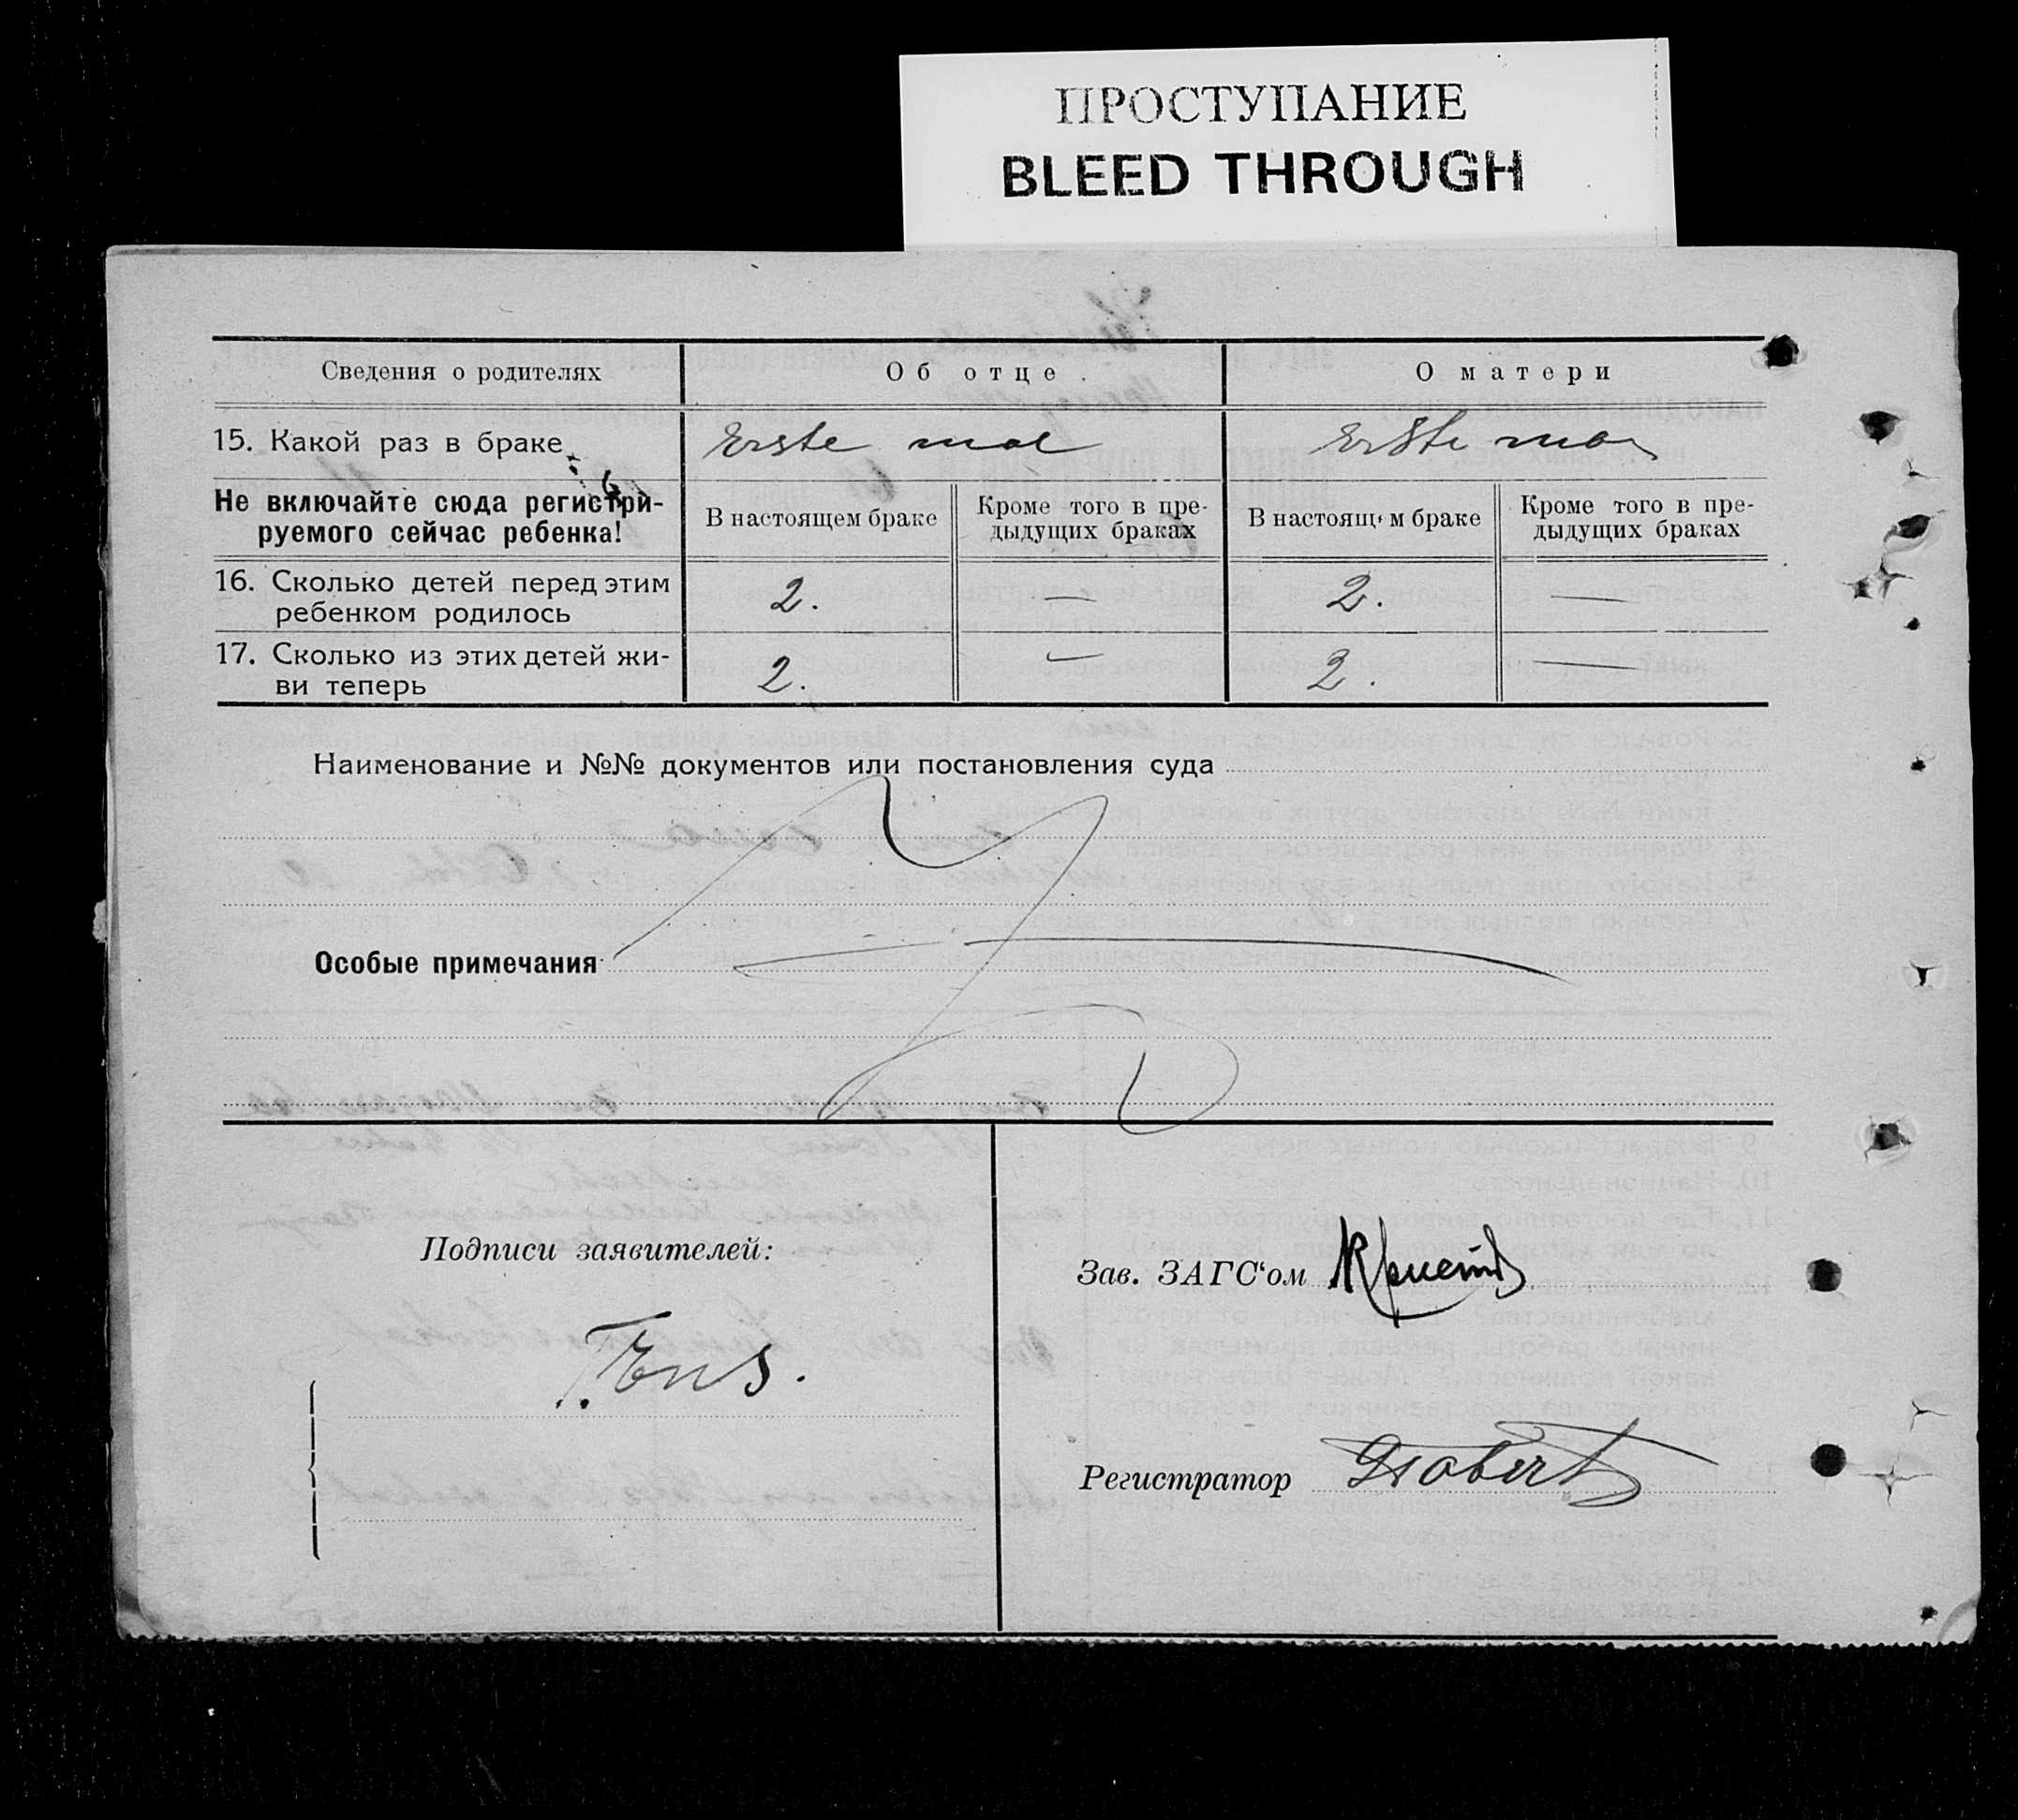 ПРОСТУПАНИЕ
BLEED THROUGH
Сведения о родителях
Об отце.
О матери
15. Какой раз в браке
Erste mal
Erste mal
Не включайте сюда регистри-
руемого сейчас ребенка!
В настоящем браке
Кроме того в пре-
дыдущих браках
В настоящем браке
Кроме того в пре-
дыдущих браках
16. Сколько детей перед этим
ребенком родилось
2.
—
2.
—
17. Сколько из этих детей жи-
ви теперь
2.
—
2.
—
Наименование и №№ документов или постановления суда
Особые примечания
Подписи заявителей:
Зав. ЗАГС‘ом
Ens.
Регистратор